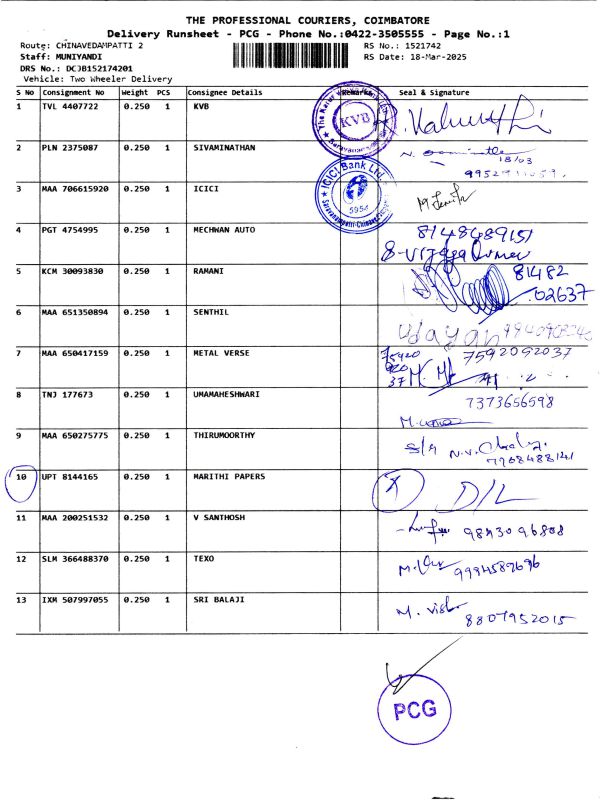 THE PROFESSIONAL COURIERS, COIMBATORE
Delivery Runsheet - PCG - Phone No.:0422-3505555 - Page No.:1
Route: CHINAVEDAMPATTI 2
RS No.: 1521742
Staff: MUNIYANDI
RS Date: 18-Mar-2025
DRS No.: DCOB152174201
Vehicle: Two Wheeler Delivery
S No Consignment No Weight PCS Consignee Details Remarks Seal & Signature
1 TVL 4407722 0.250 1 KVB
KVB
2 PLN 2375087 0.250 1 SIVAMINATHAN
18/03
3 MAA 706615920 0.250 1 ICICI
ICICI Bank Ltd
4 PGT 4754995 0.250 1 MECHWAN AUTO 8148489151
5 KCM 30093830 0.250 1 RAMANI 81482
02637
6 MAA 651350894 0.250 1 SENTHIL Udayan
7 MAA 650417159 0.250 1 METAL VERSE 7592092037
8 TNJ 177673 0.250 1 UMAMAHESHWARI 7373656598
9 MAA 650275775 0.250 1 THIRUMOORTHY
S/A N.V.
7968488141
10 UPT 8144165 0.250 1 MARITHI PAPERS D/L
11 MAA 200251532 0.250 1 V SANTHOSH
12 SLM 366488370 0.250 1 TEXO 9994587696
13 IXM 507997055 0.250 1 SRI BALAJI
8807952015
PCG